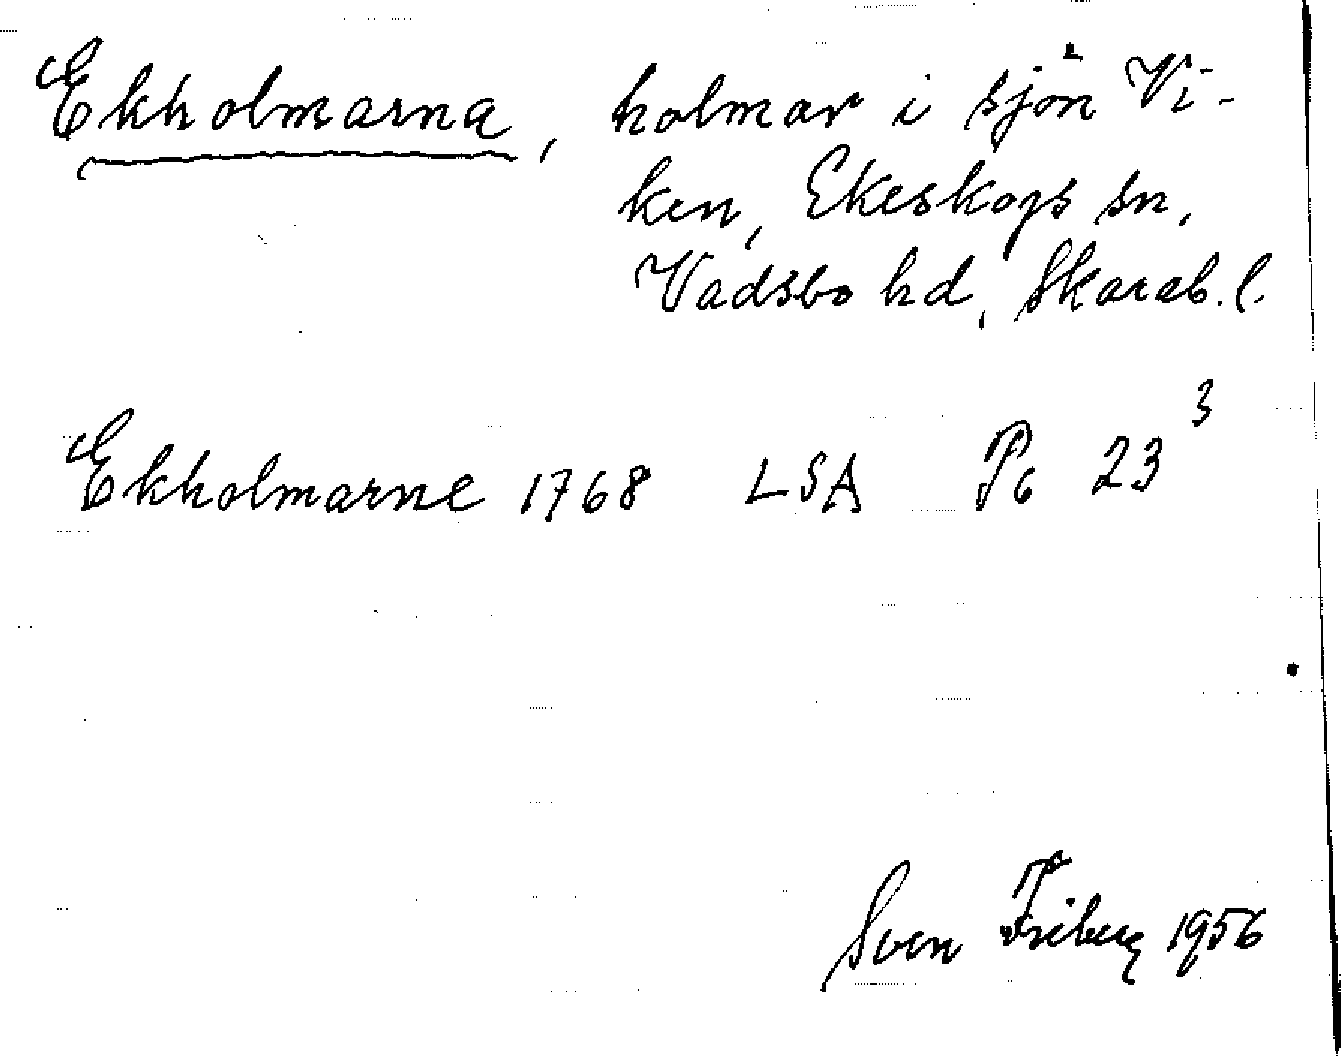 Ekholmarna, holmar i sjön Vi-
ken, Ekeskogs sn,
Vadsbo hd, Skarab. l.
Ekholmarne 1768 LSA P6 23³
Sven Friberg 1956